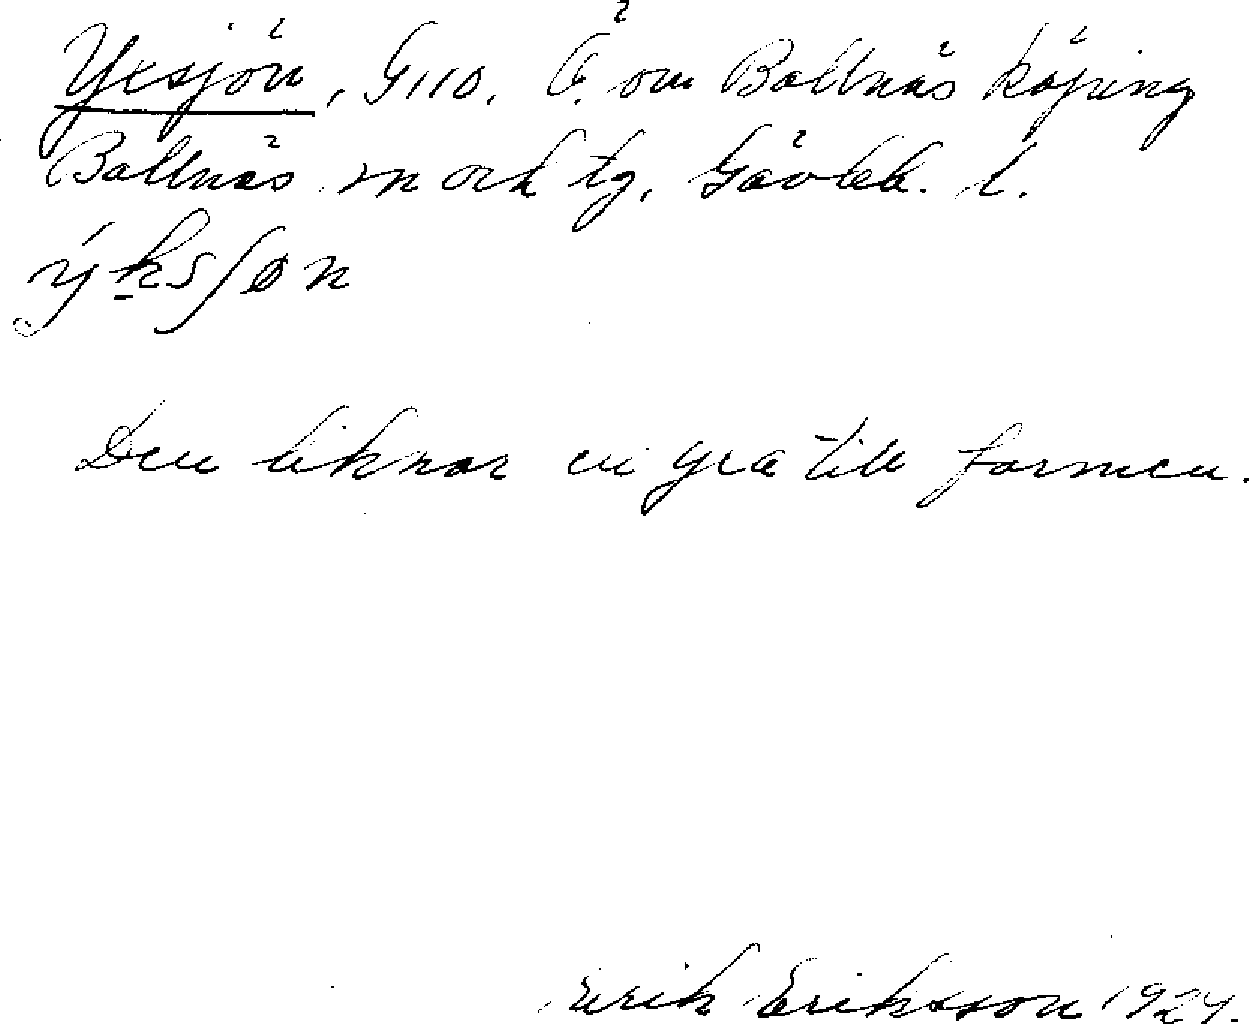 Yxsjön, G110. Ö. om Bollnäs köping
Bollnäs sn och tg, Gävleb. l.
ýksʃøn
Den liknar en yxa till formen.
Erik Eriksson 1924.